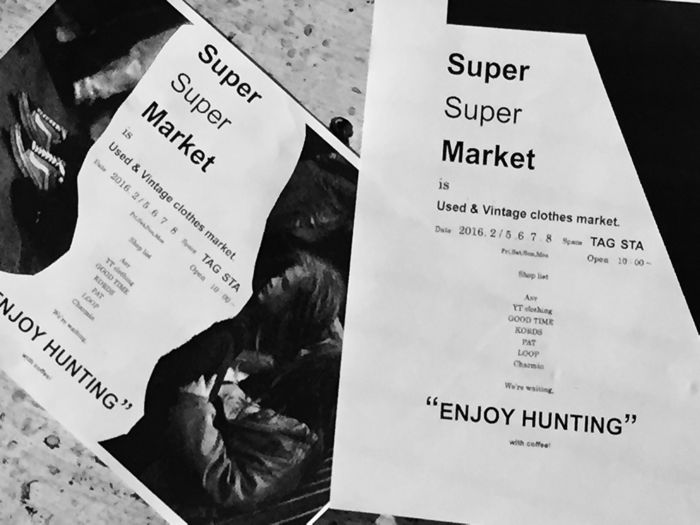 Super
Super
Market
is
Used & Vintage clothes market.
Date 2016. 2 / 5. 6. 7. 8 Space TAG STA
Fri,Sat,Sun,Mon Open 10:00~
Shop list
Any
YT clothing
GOOD TIME
KORDS
PAT
LOOP
Charmin
We're waiting.
ENJOY HUNTING”
with coffee!
Super
Super
Market
is
Used & Vintage clothes market.
Date 2016. 2 / 5. 6. 7. 8 Space TAG STA
Fri,Sat,Sun,Mon Open 10:00~
Shop list
Any
YT clothing
GOOD TIME
KORDS
PAT
LOOP
Charmin
We're waiting.
“ENJOY HUNTING”
with coffee!